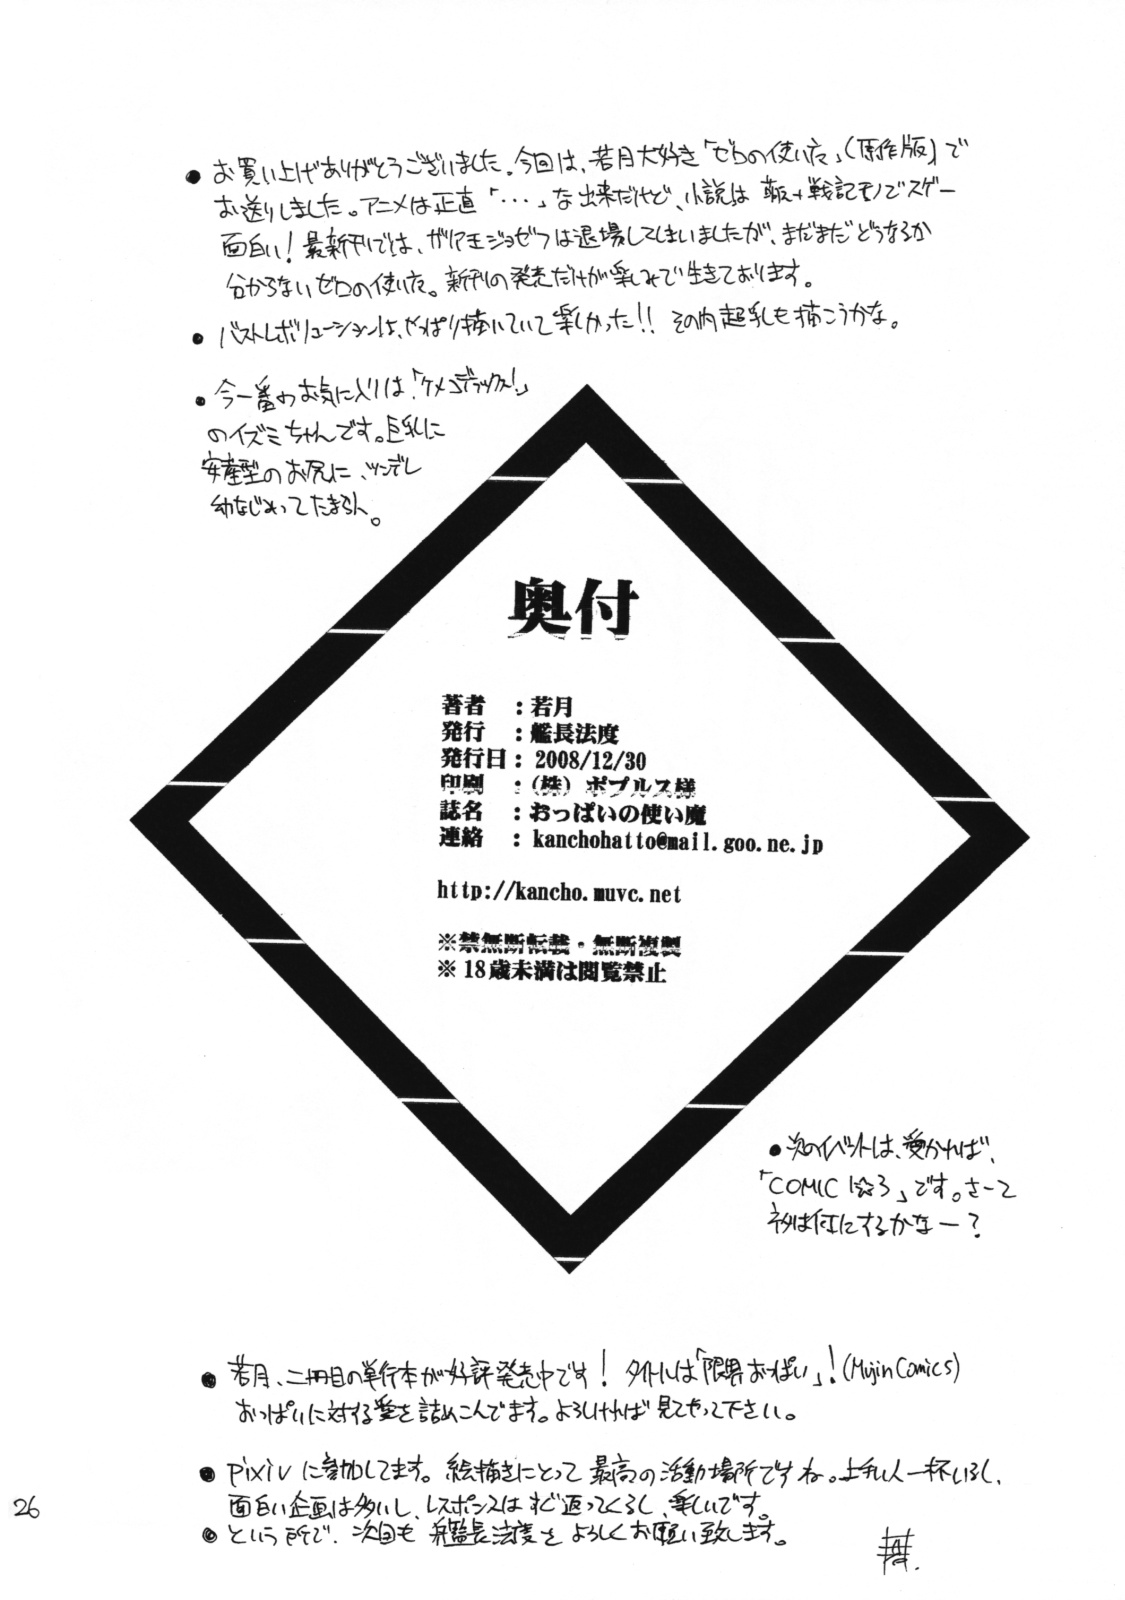 ● お買い上げありがとうございました。今回は、若月大好き「ゼロの使い魔」(原作版)で
お送りしました。アニメは正直「・・・」な出来だけど、小説は 戦記モノでスゲー
面白い! 最新刊では、ガリア王ジョゼフは退場してしまいましたが、まだまだどうなるか
分からないゼロの使い魔。新刊の発売だけが楽しみで生きております。
● バストレボリューションは、やっぱり描いていて楽しかった!! その内超乳も描こうかな。
● 今一番のお気に入りは「ケメコデラックス!」
のイズミちゃんです。巨乳に
安産型のお尻に、ツンデレ
幼なじみってたまらん。
奥付
著者 :若月
発行 :艦長法度
発行日: 2008/12/30
印刷 :(株) ポプルス様
誌名 :おっぱいの使い魔
連絡 : kanchohatto@mail.goo.ne.jp
http://kancho.muvc.net
※禁無断転載・無断複製
※18歳未満は閲覧禁止
● 次のイベントは、受かれば、
「COMIC 1☆3」です。さーて
ネタは何にするかなー?
● 若月、二冊目の単行本が好評発売中です! タイトルは「限界おっぱい」!(Mujin Comics)
おっぱいに対する愛を詰めこんでます。よろしければ見てやって下さい。
● pixivに参加してます。絵描きにとって最高の活動場所ですね。上手い人一杯いるし、
面白い企画は多いし、レスポンスはすぐ返ってくるし、楽しいです。
● という所で、次回も艦長法度をよろしくお願い致します。
26